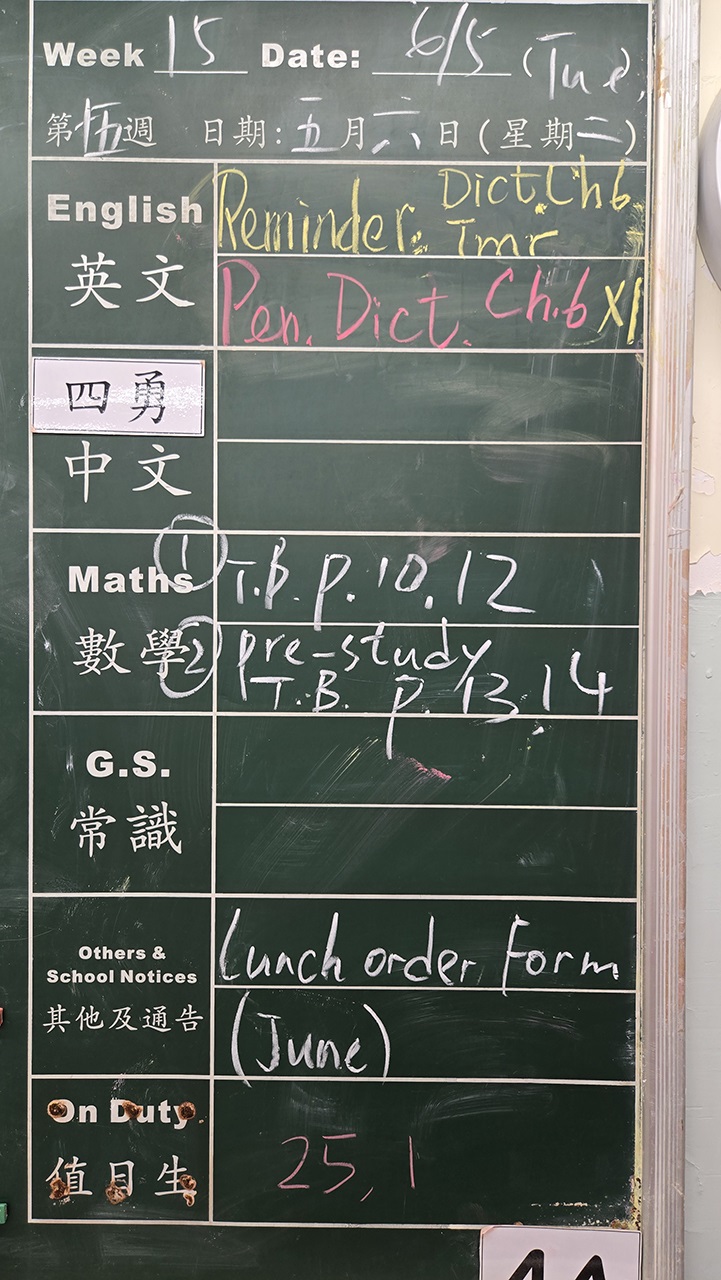 Week 15 Date: 6/5 (Tue)
第十五週 日期:五月六日(星期二)
English 英文
Reminder: Dict. Ch6 Tmr
Pen. Dict. Ch.6 X1
四勇
中文
Maths 數學
① T.B. p.10, 12
② pre-study
T.B. p. 13, 14
G.S.
常識
Others &
School Notices
其他及通告
Lunch order Form
(June)
On Duty
值日生
25, 1